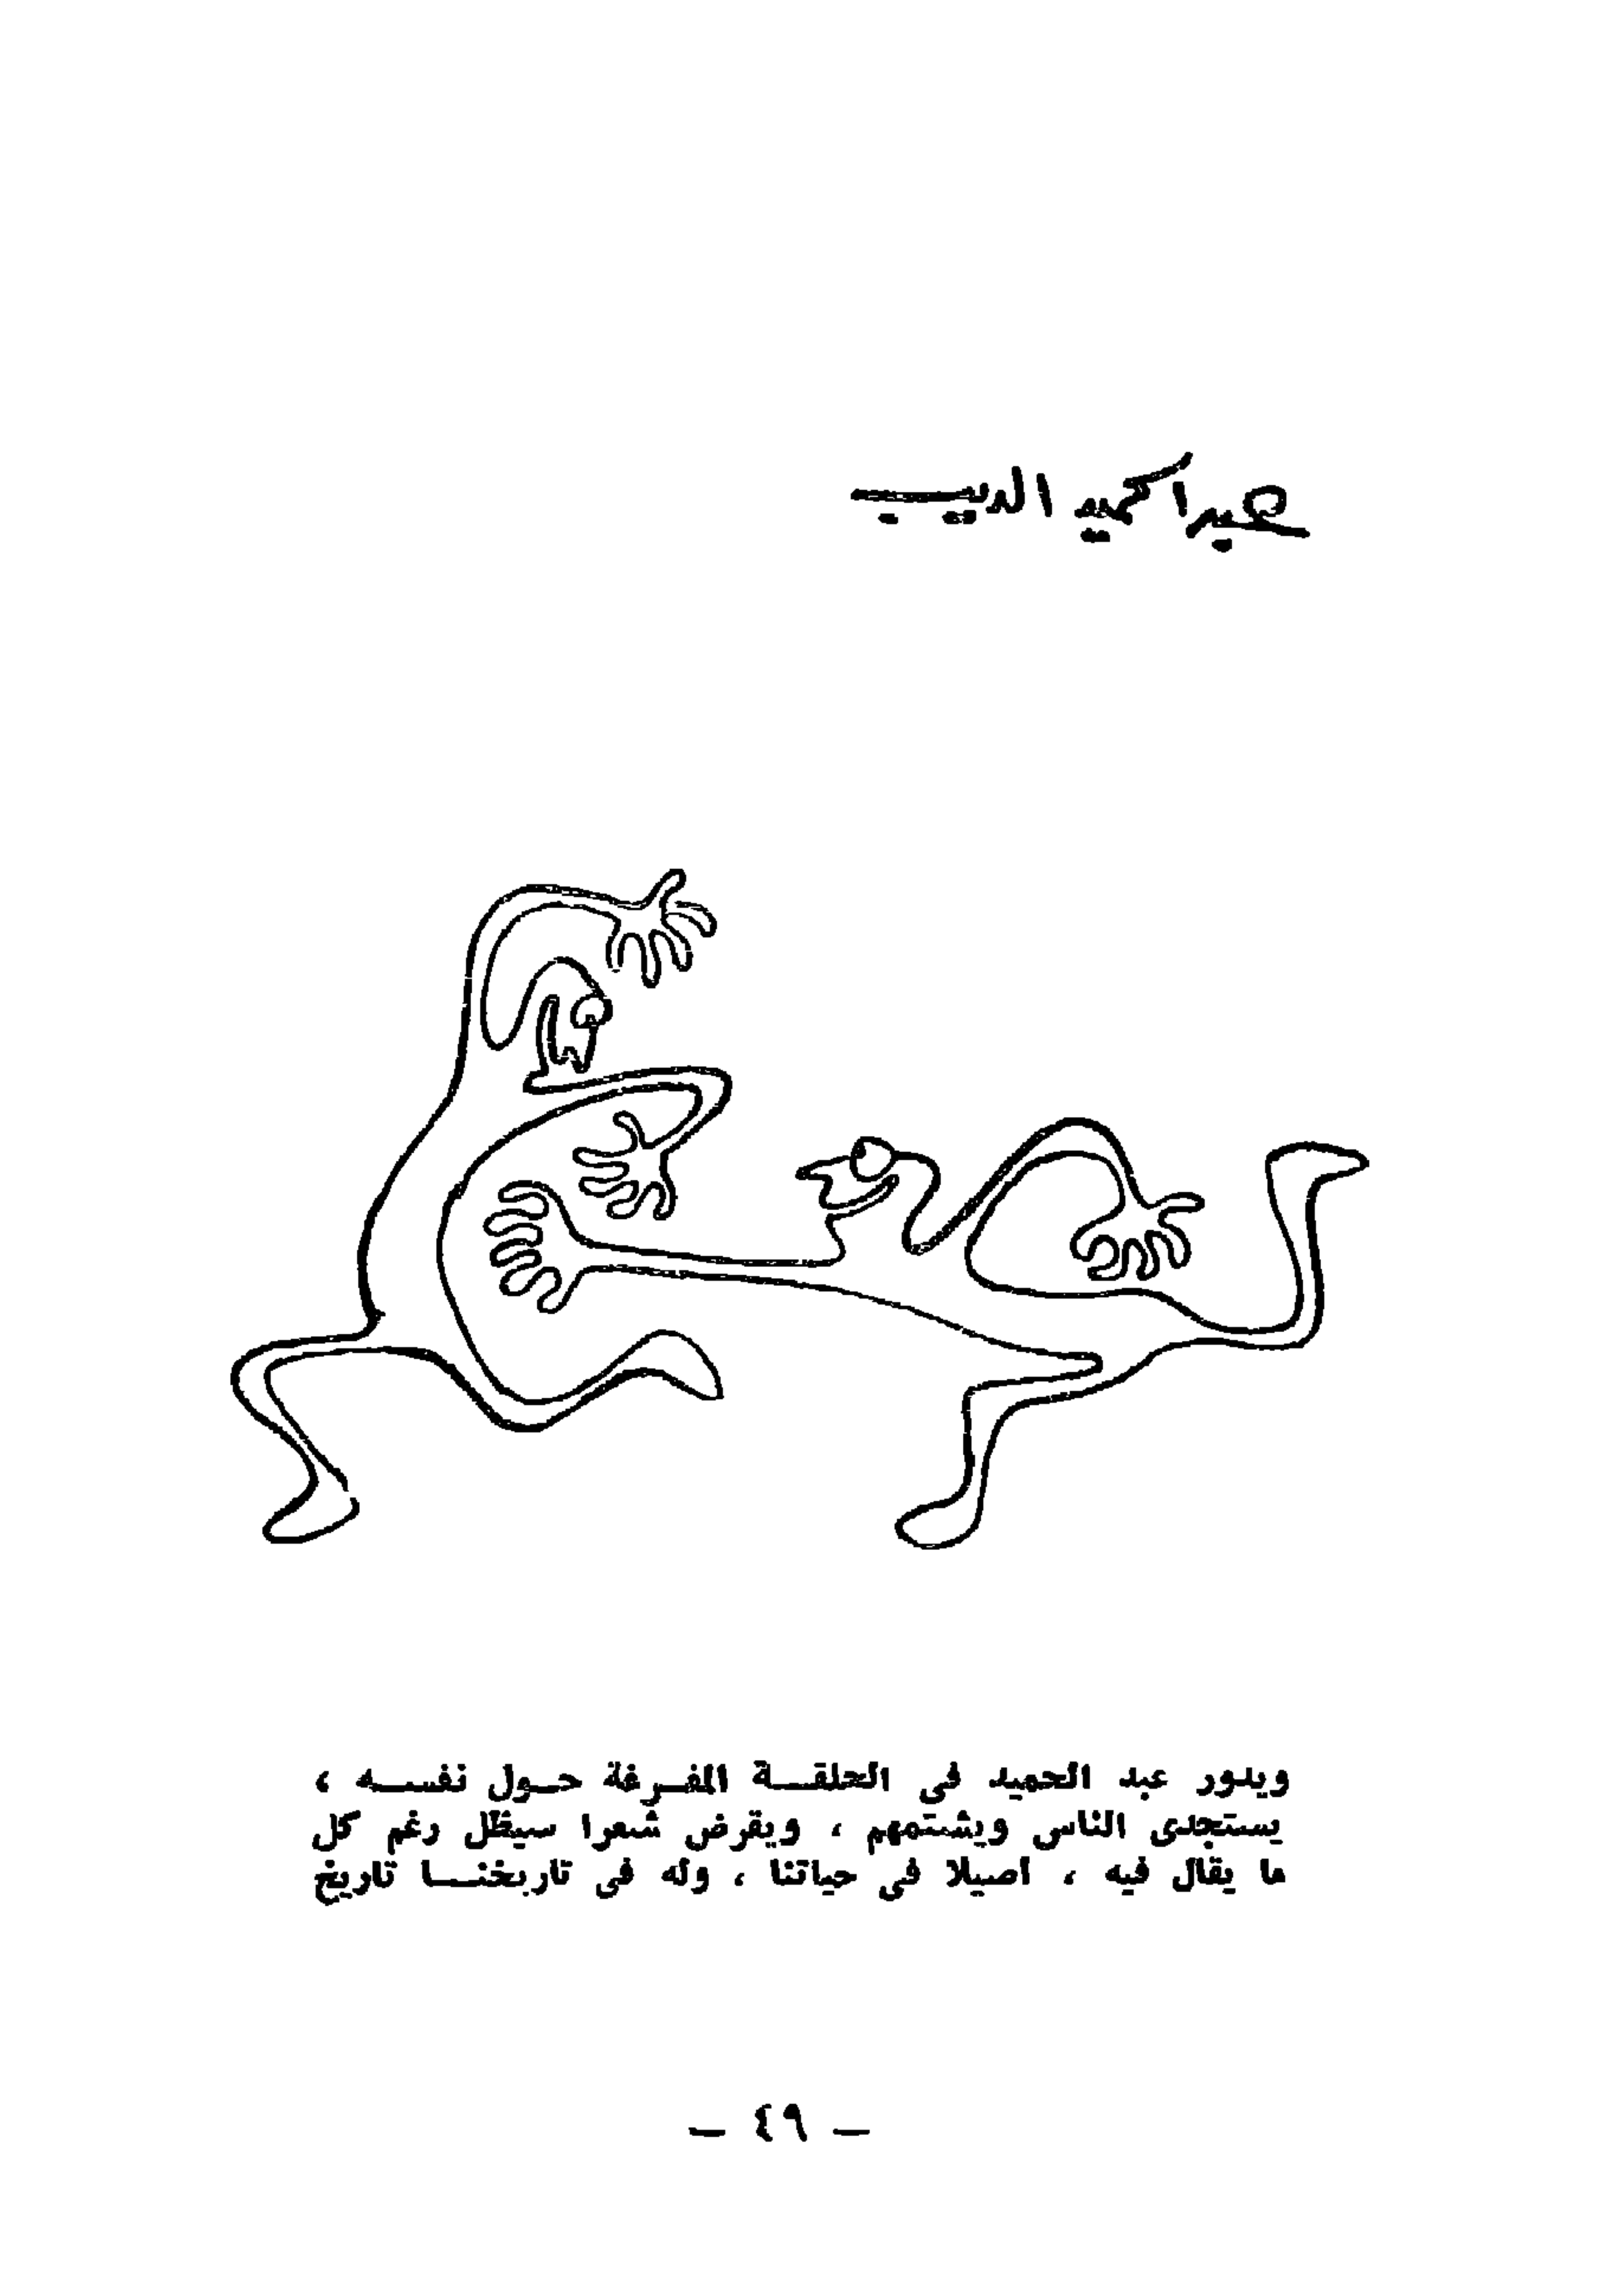 عبد الحميد الديب
ويدور عبد الحميد فى الحلقة المفرغة حول نفسه ،
يستجدى الناس ويشتمهم ، ويقرض شعرا سيظل رغم كل
ما يقال فيه ، أصيلا فى حياتنا ، وله فى تاريخنا تاريخ
— ٤٩ —